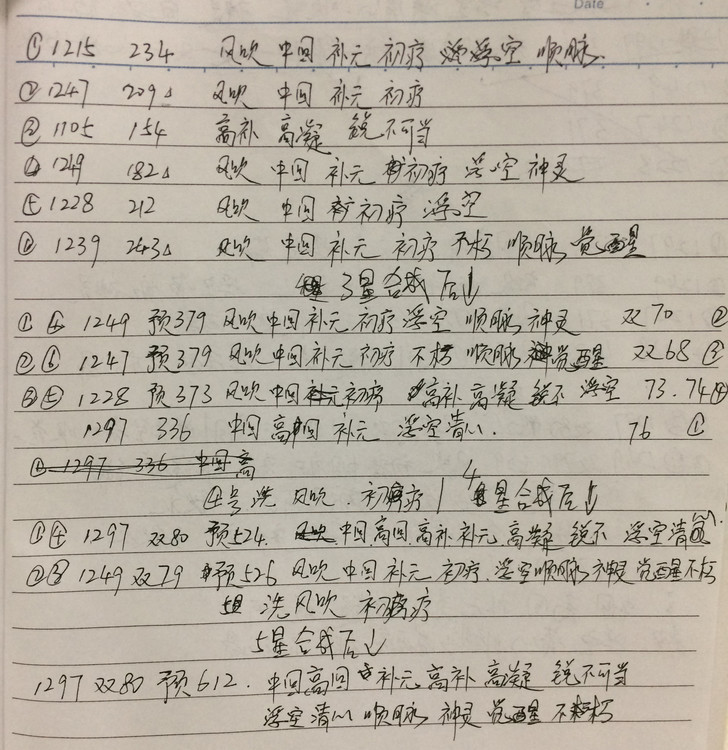 Date
① 1215 234 风吹 中回 补元 初疗 浮空 顺脉
② 1247 209△ 风吹 中回 补元 初疗
③ 1105 154 高补 高凝 锐不可当
④ 1249 182△ 风吹 中回 补元 初疗 浮空 神灵
⑤ 1228 212 风吹 中回 初疗 浮空
⑥ 1239 243△ 风吹 中回 补元 初疗 不朽 顺脉 觉醒
3星合成后↓
①④ 1249 预379 风吹中回补元 初疗浮空 顺脉 神灵 双70 ②
②⑥ 1247 预379 风吹中回补元 初疗 不朽 顺脉 觉醒 双68 ③
③⑤ 1228 预373 风吹中回补元初疗 高补高凝 锐不 浮空 73.74④
1297 336 中回高回补元 浮空清心. 76 ①
② 1297 336 中回高
④号洗 风吹.初疗 4星合成后↓
①④ 1297 双80 预524. 风吹 中回高回.高补补元 高凝 锐不 浮空清心
②③ 1249双79 预526 风吹中回补元 初疗.浮空顺脉神灵觉醒不朽
洗风吹 初疗
5星合成后↓
1297 双80 预612. 中回高回 补元 高补 高凝 锐不可当
浮空清心 顺脉 神灵 觉醒 不朽